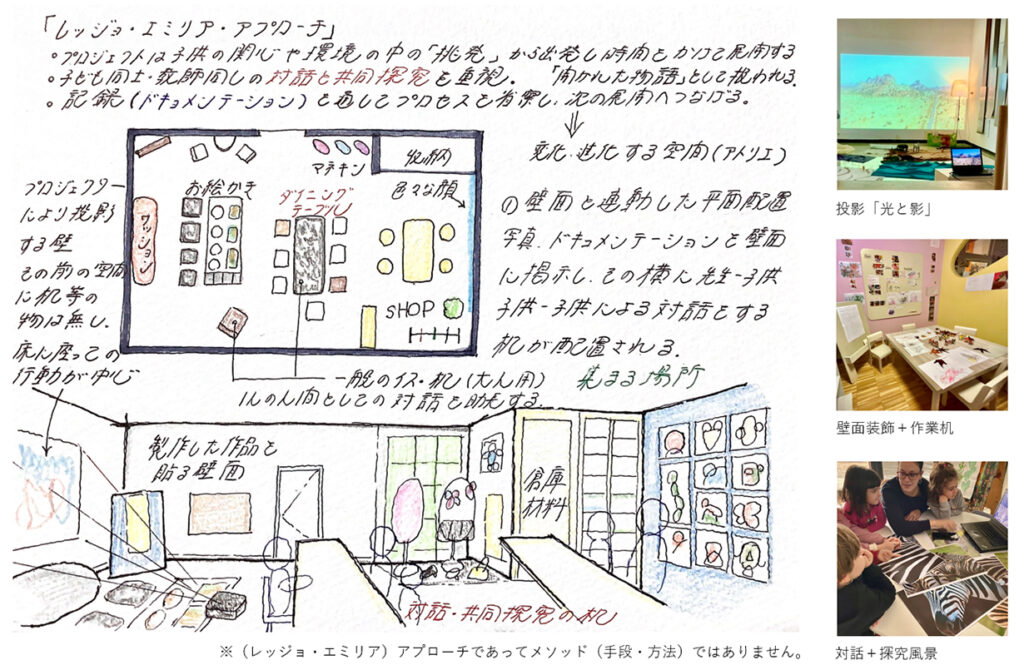 「レッジョ・エミリア・アプローチ」
・プロジェクトは子供の関心や環境の中の「挑発」から出発し時間をかけて展開する
・子ども同士・教師同しの対話と共同探究を重視。「開かれた物語」として扱われる
・記録(ドキュメンテーション)を通してプロセスを省察し、次の展開へつなげる。
変化、進化する空間(アトリエ)
の壁面と連動した平面配置
写真、ドキュメンテーションを壁面
に掲示し、この横に先生-子供
子供-子供による対話をする
机が配置される。
集まる場所
プロジェクター
により投影
する壁
その前の空間
に机等の
物は無し、
床に座っての
行動が中心
マネキン
収納
お絵かき
ダイニング
テーブル
色々な顔
クッション
SHOP
一般のイス・机(大人用)
1人の人間としての対話を助長する。
製作した作品を
貼る壁面
倉庫
材料
対話・共同探究の机
※（レッジョ・エミリア）アプローチであってメソッド（手段・方法）ではありません。
投影「光と影」
壁面装飾＋作業机
対話＋探究風景